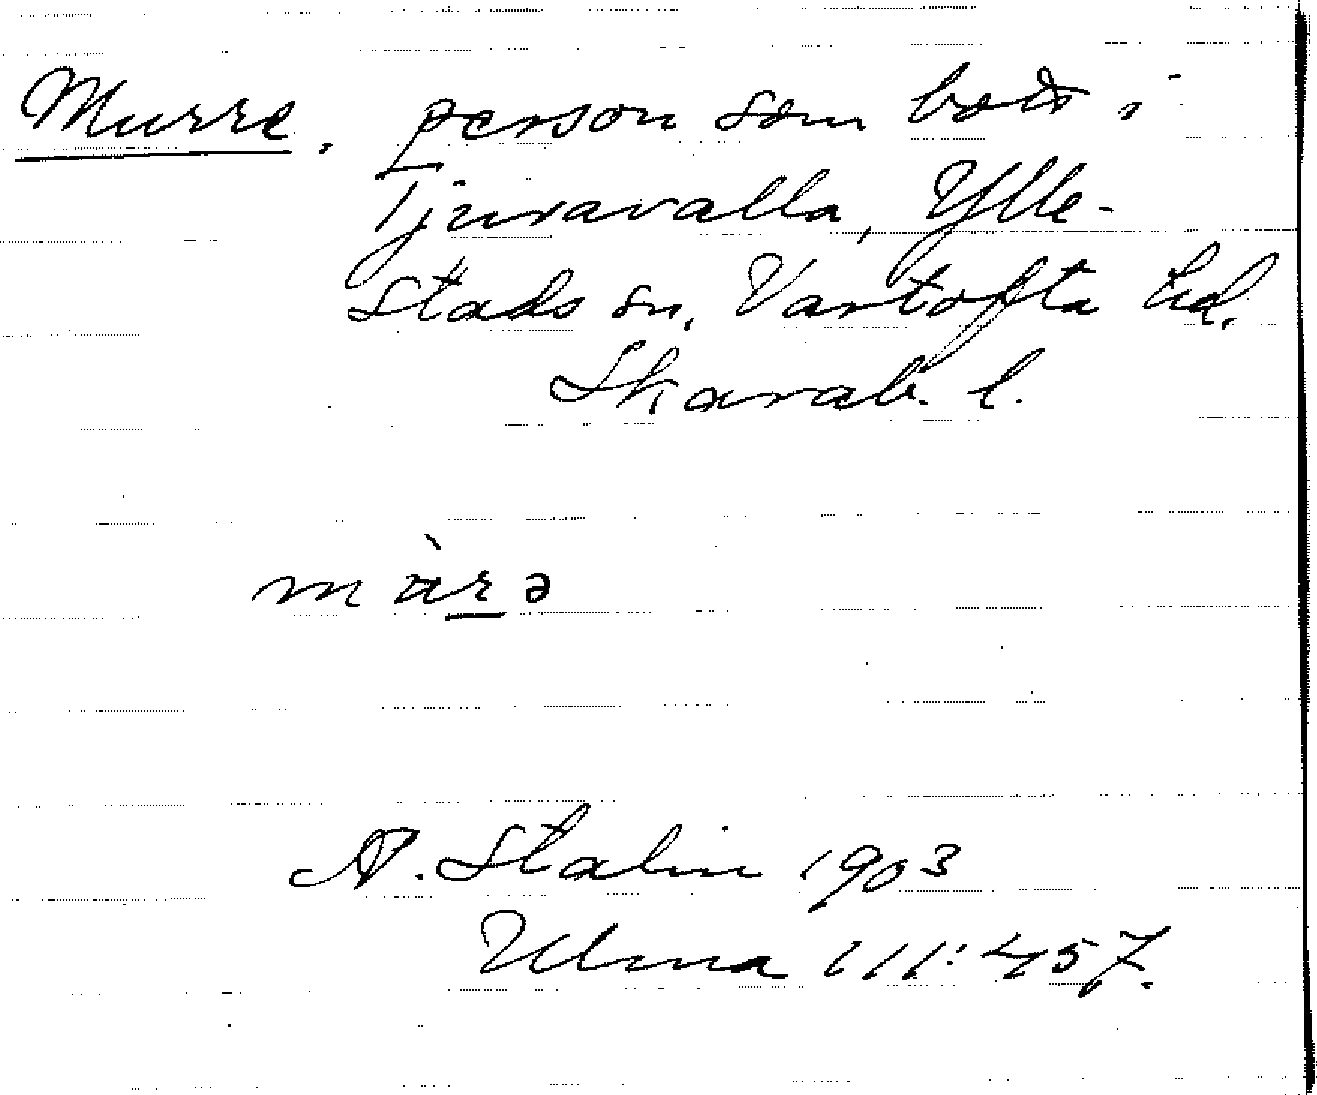 Murre, person som bott i
Tjuravalla, Ylle-
stads sn, Vartofta hd.
Skarab. l.
mùrə
A. Stalin 1903
Ulma 111:457.